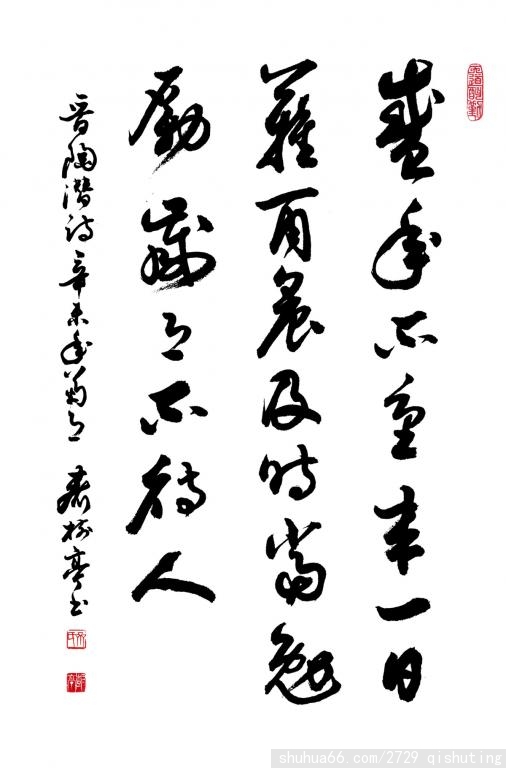 天道酬勤
盛年不重来一日
難再晨及时當勉
励歲月不待人
晋陶潜诗辛未年菊月 戚树亭书
shuhua66.com/2729 qishuting